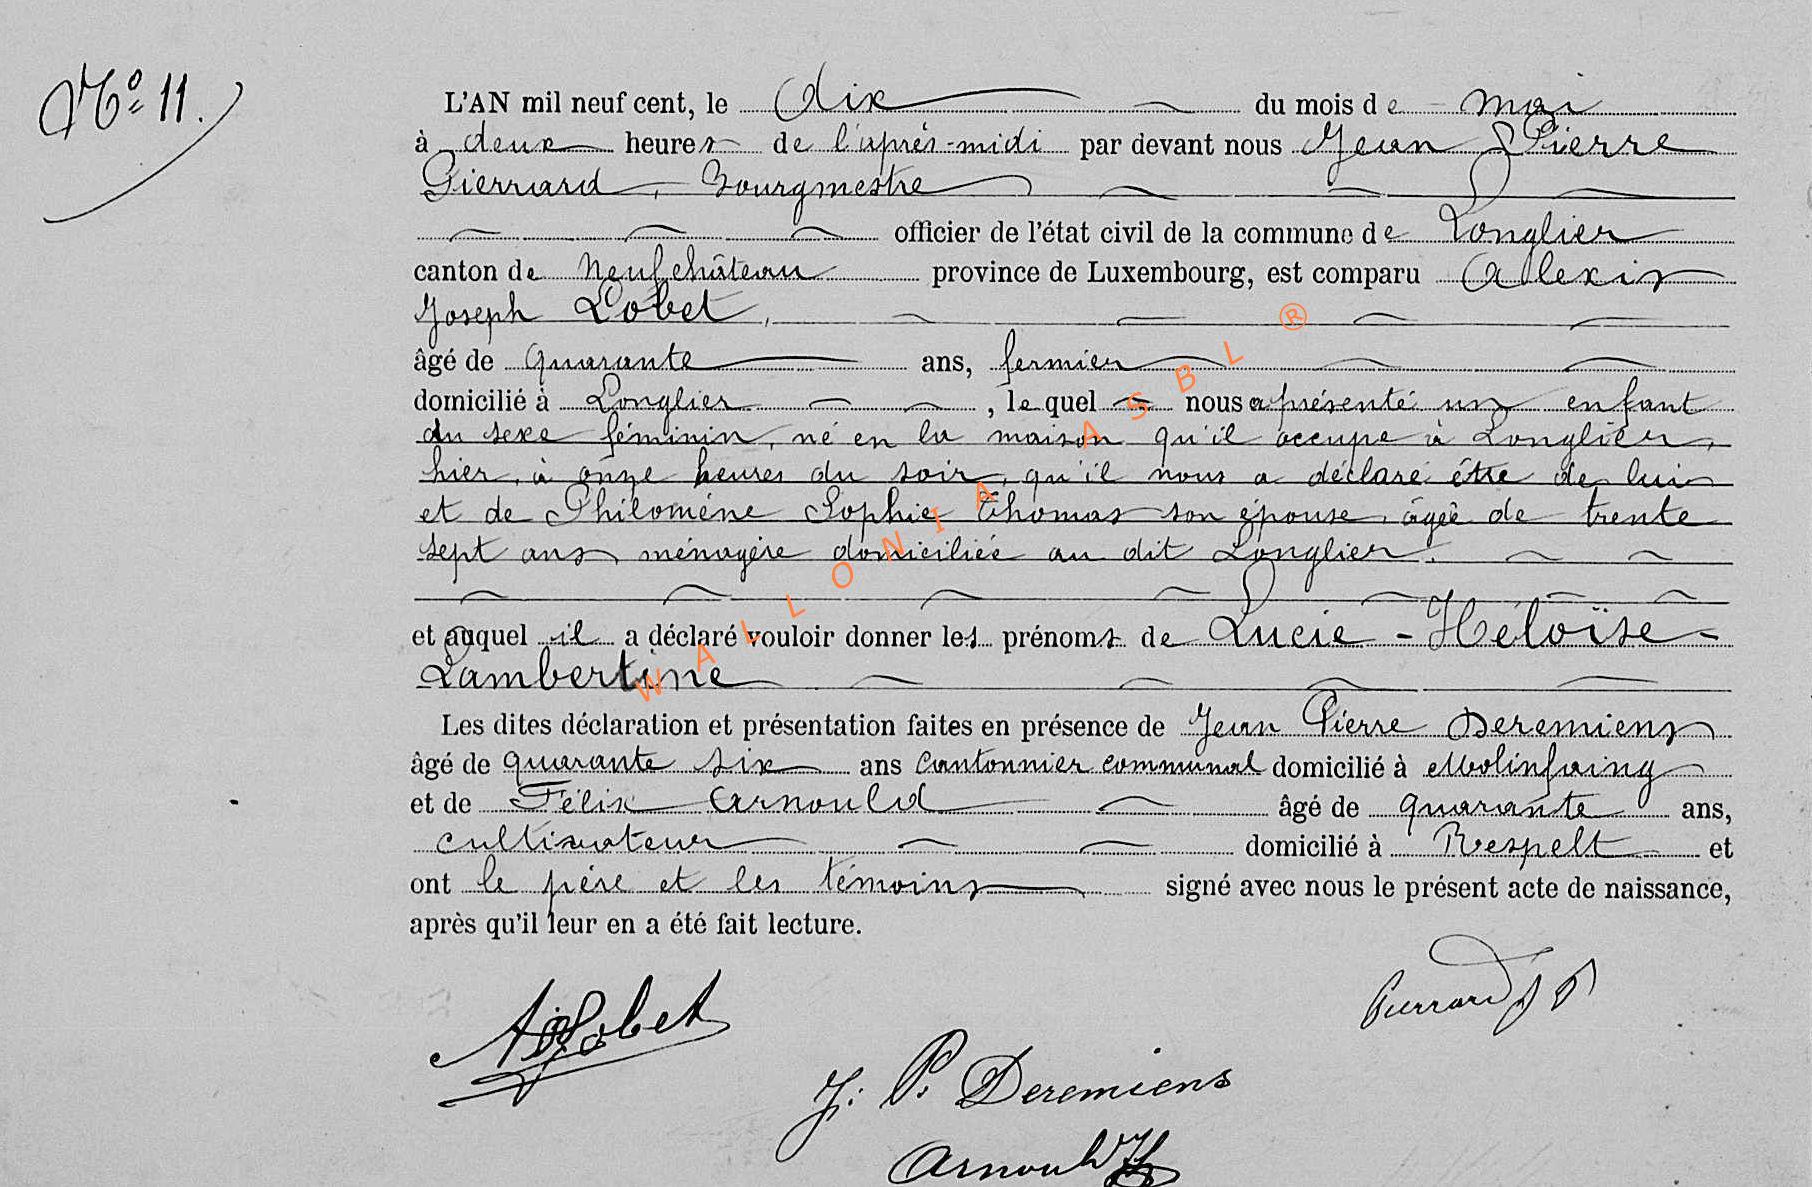 N° 11.
L'AN mil neuf cent, le dix du mois de mai
à deux heures de l'après-midi par devant nous Jean Pierre
Pierrard, Bourgmestre
officier de l'état civil de la commune de Longlier
canton de Neufchâteau province de Luxembourg, est comparu Alexis
Joseph Lobet,
âgé de quarante ans, fermier
domicilié à Longlier, lequel nous a présenté un enfant
du sexe féminin, né en la maison qu'il occupe à Longlier,
hier, à onze heures du soir, qu'il nous a déclaré être de lui
et de Philomène Sophie Thomas son épouse, âgée de trente
sept ans, ménagère domiciliée au dit Longlier.
et auquel il a déclaré vouloir donner les prénoms de Lucie - Héloïse -
Lambertine
Les dites déclaration et présentation faites en présence de Jean Pierre Deremiens
âgé de quarante six ans cantonnier communal domicilié à Molinfaing
et de Félix Arnould âgé de quarante ans,
cultivateur domicilié à Respelt et
ont le père et les témoins signé avec nous le présent acte de naissance,
après qu'il leur en a été fait lecture.
AJLobet
Pierrard J P
J. P. Deremiens
Arnould F
WALLONIA ASBL ®